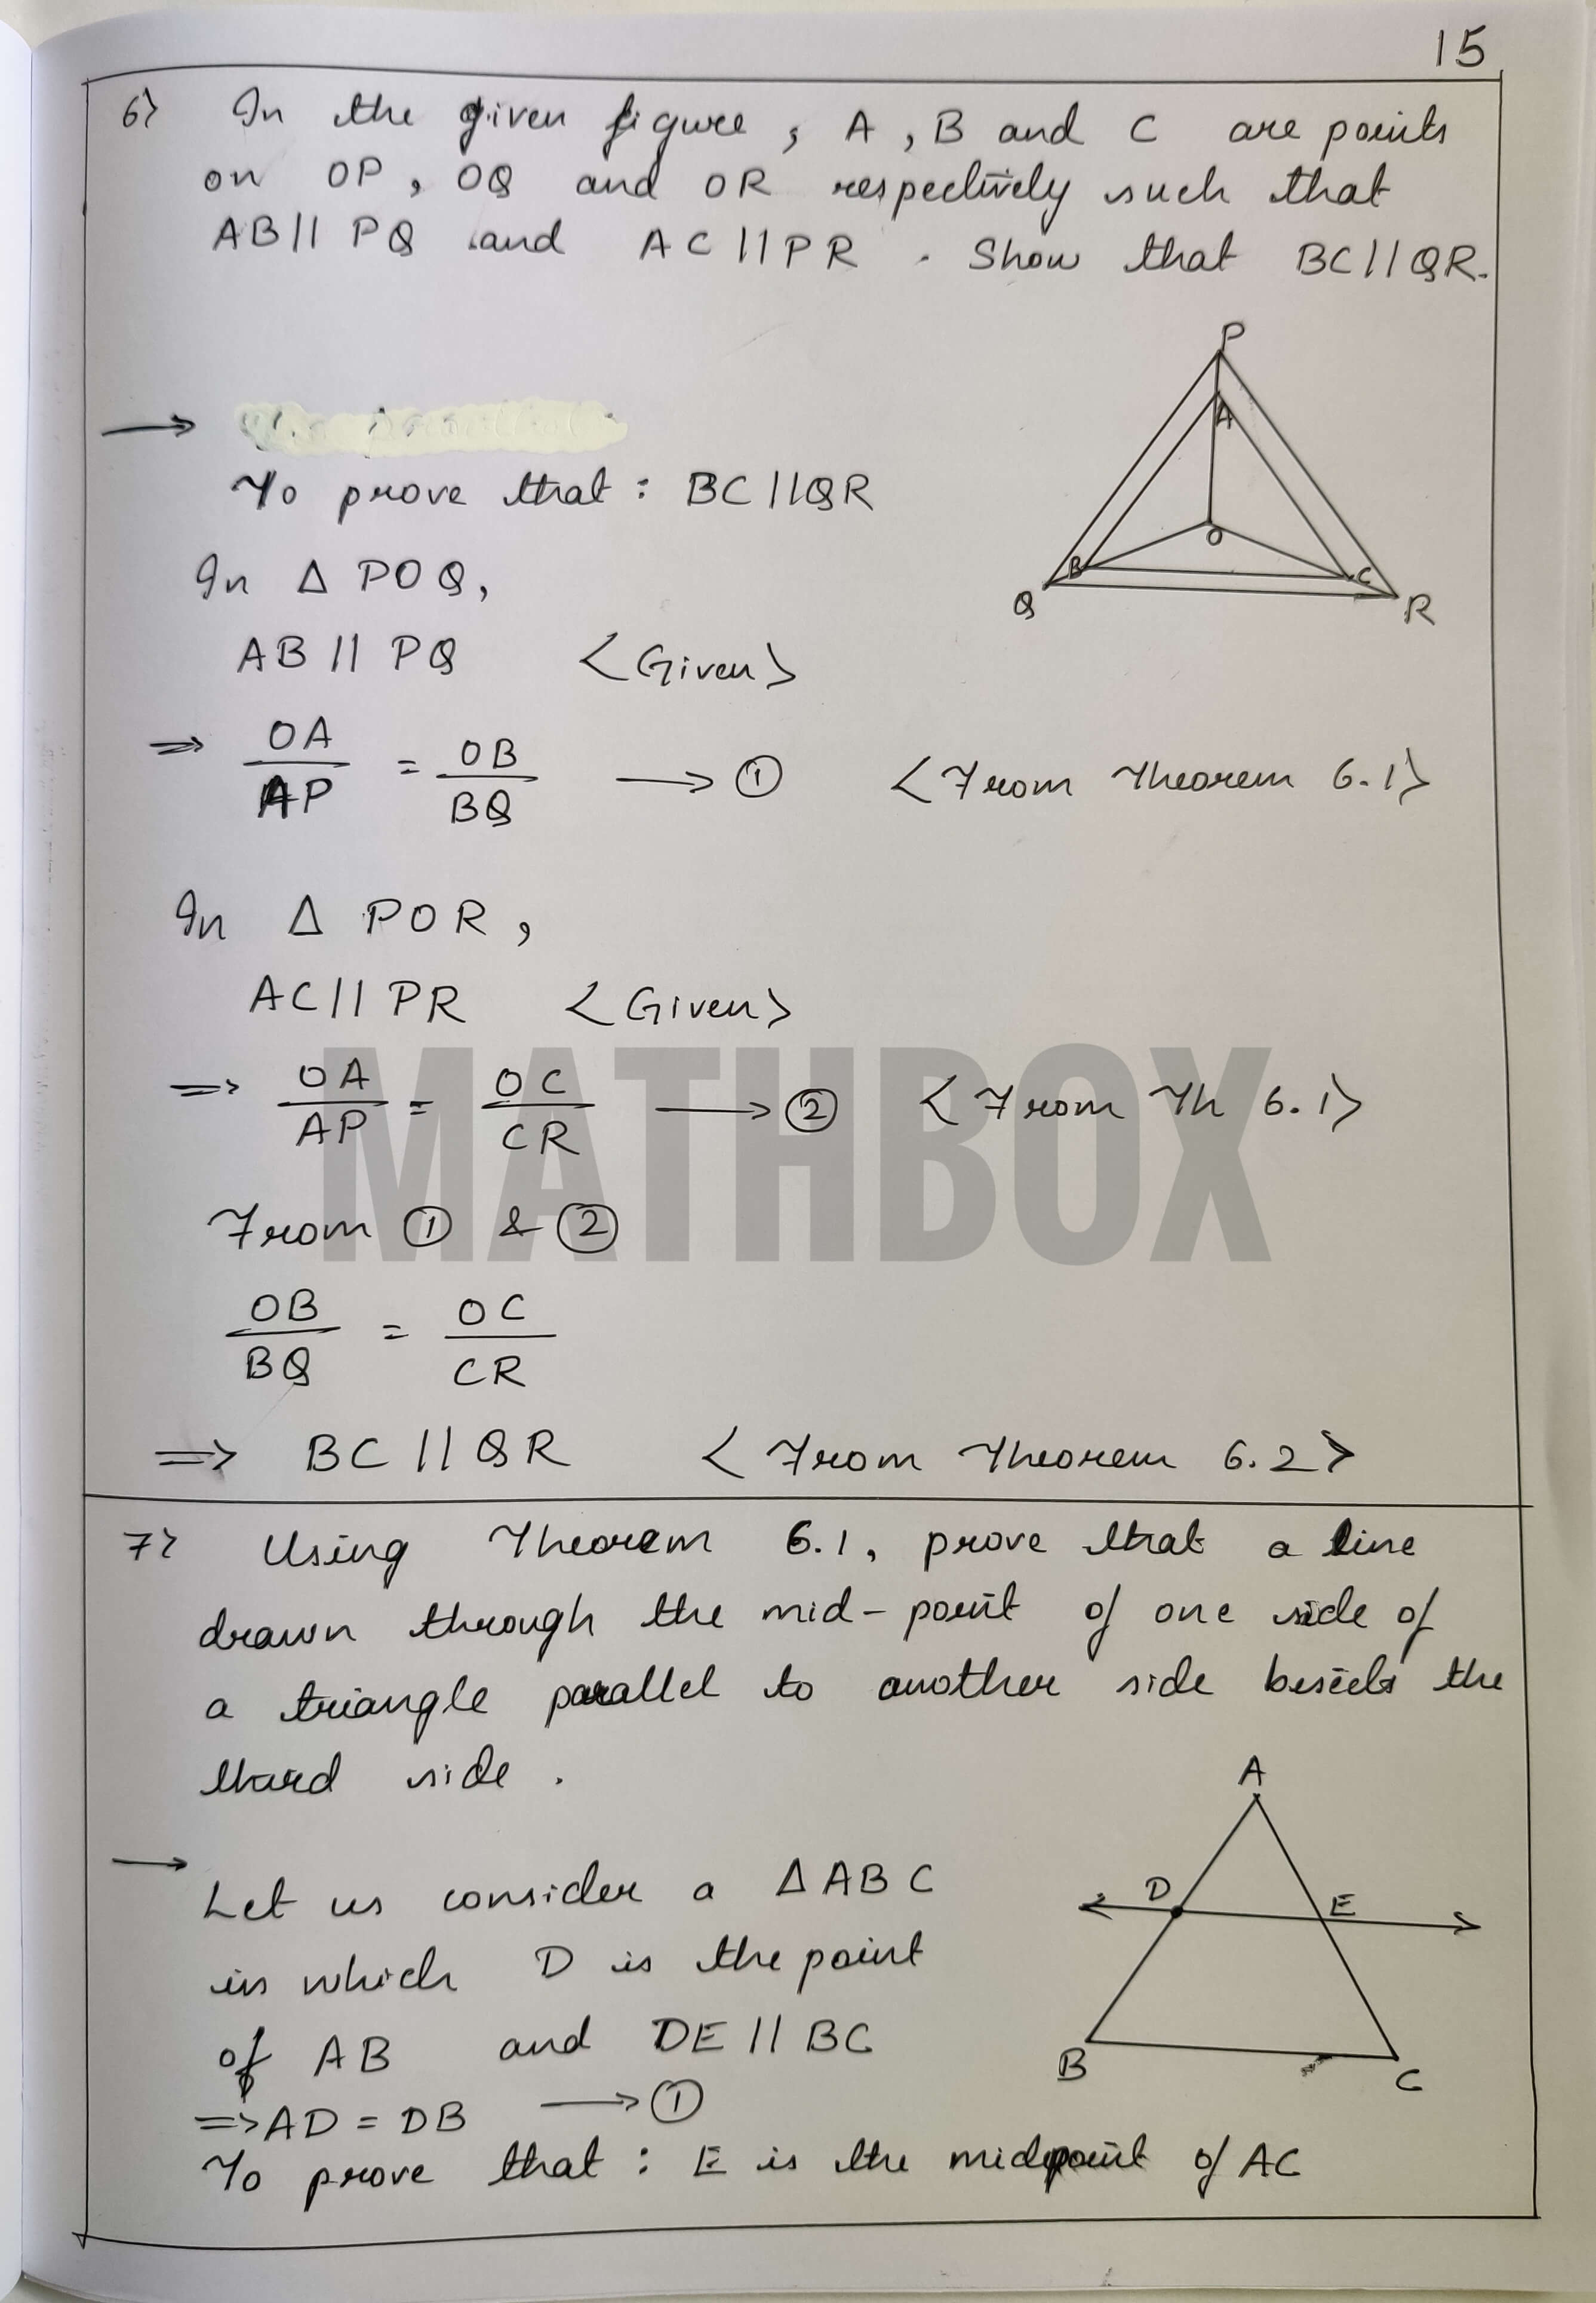 15
6> In the given figure, A, B and C are points
on OP, OQ and OR respectively such that
AB || PQ and AC || PR. Show that BC || QR.
P
A
O
B
C
Q
R
→
To prove that : BC || QR
In Δ POQ,
AB || PQ <Given>
⇒ OA/AP = OB/BQ → ① <From Theorem 6.1>
In Δ POR,
AC || PR <Given>
⇒ OA/AP = OC/CR → ② <From Th 6.1>
MATHBOX
From ① & ②
OB/BQ = OC/CR
⇒ BC || QR <From Theorem 6.2>
7> Using Theorem 6.1, prove that a line
drawn through the mid-point of one side of
a triangle parallel to another side bisects the
third side.
A
D
E
B
C
→ Let us consider a Δ ABC
in which D is the point
of AB and DE || BC
⇒ AD = DB → ①
To prove that : E is the midpoint of AC